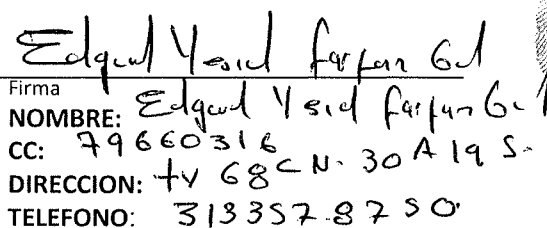 Edgard Yesid farfan Gil
Firma
NOMBRE: Edgard Yesid farfan Gil
CC: 79660316
DIRECCION: tv 68 C N. 30 A 19 S.
TELEFONO: 3133578750